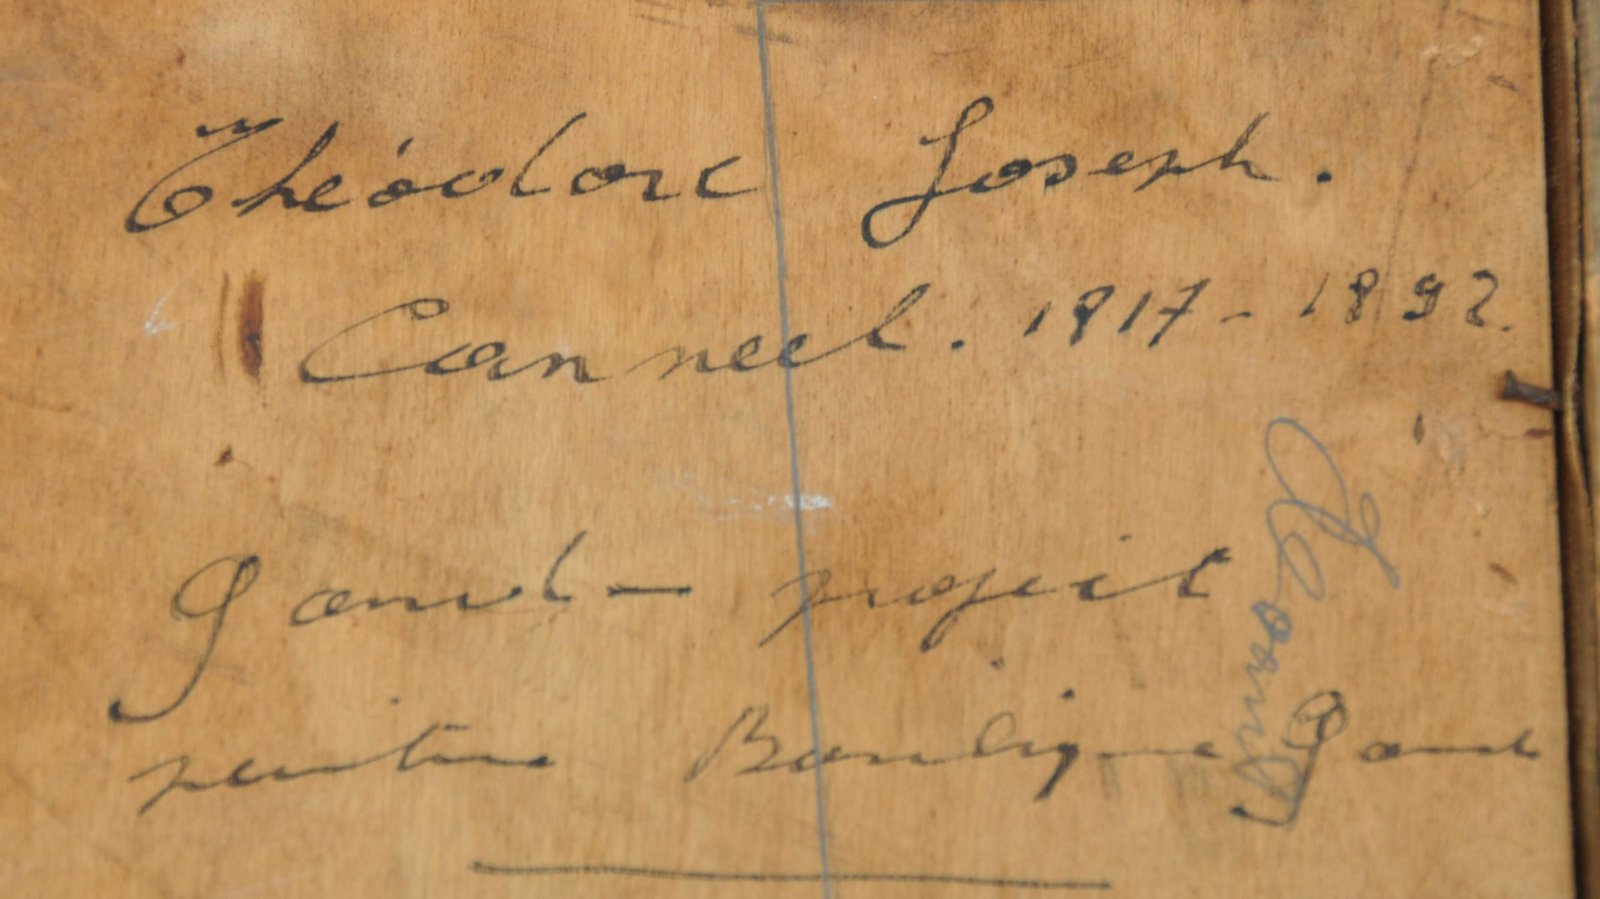 Théodore Joseph.
Canneel. 1817 - 1892.
Gand - projet
peinture Basilique Gand